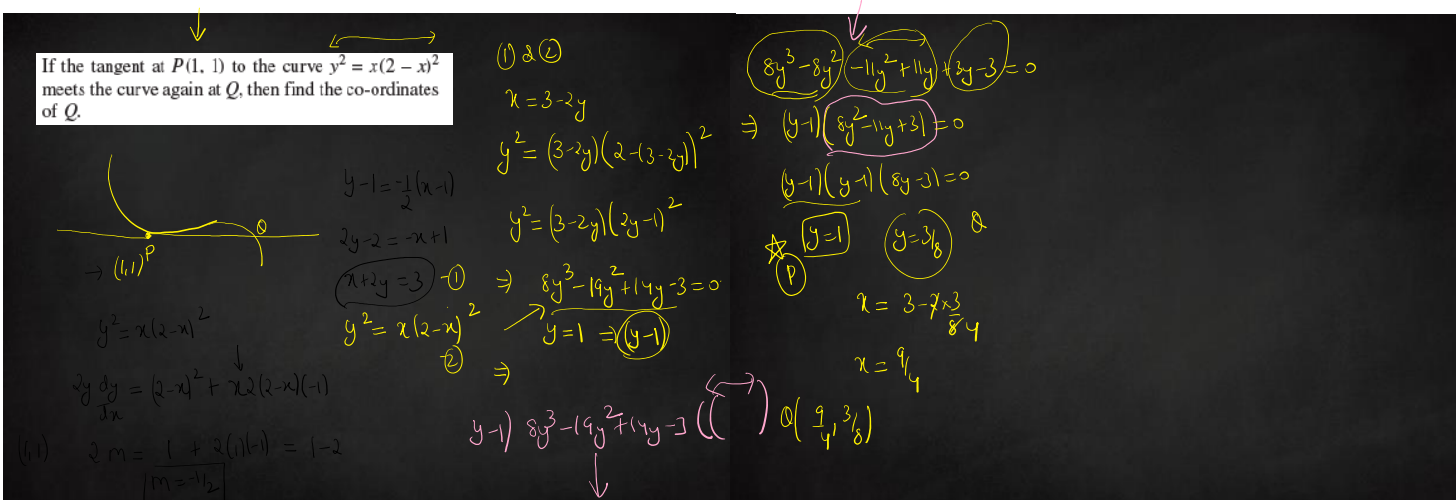 If the tangent at P(1, 1) to the curve y² = x(2 – x)²
meets the curve again at Q, then find the co-ordinates
of Q.
P
Q
→ (1,1)
y² = x(2-x)²
2y dy/dx = (2-x)² + x2(2-x)(-1)
(1,1) 2m = 1 + 2(1)(-1) = 1-2
m = -1/2
y-1 = -1/2 (x-1)
2y-2 = -x+1
x+2y = 3 -①
y² = x(2-x)²
-②
① & ②
x = 3-2y
y² = (3-2y)(2-(3-2y))²
y² = (3-2y)(2y-1)²
⇒ 8y³-19y²+14y-3=0
y=1 ⇒ (y-1)
⇒
y-1) 8y³-19y²+14y-3 ((   )
8y³-8y² -11y²+11y +3y-3 = 0
⇒ (y-1)(8y²-11y+3) = 0
(y-1)(y-1)(8y-3) = 0
y=1 y=3/8 Q
P
x = 3-2×3/8 4
x = 9/4
Q(9/4, 3/8)